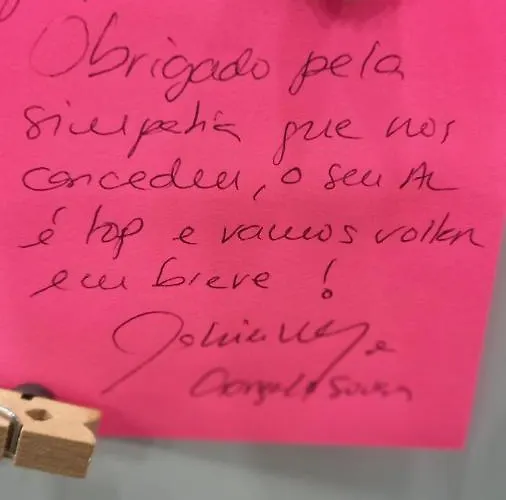 Obrigado pela
simpatia que nos
concedeu, o seu AL
é top e vamos voltar
em breve !
e
Gonçalo Sousa